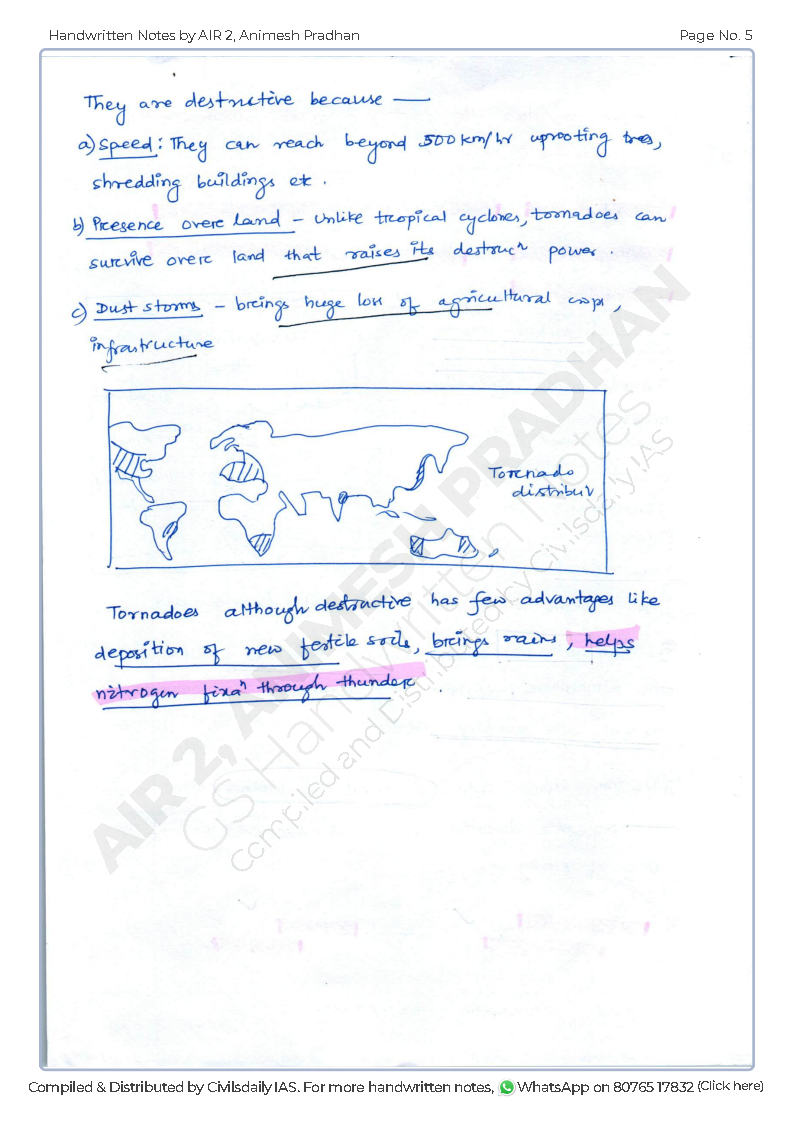 Handwritten Notes by AIR 2, Animesh Pradhan Page No. 5
They are destructive because —
a) Speed: They can reach beyond 500 km/hr uprooting trees,
shredding buildings etc.
b) Presence over land – Unlike tropical cyclones, tornadoes can
survive over land that raises its destrucⁿ power.
c) Dust storms – brings huge loss of agricultural crops,
infrastructure
Tornado
distribuⁿ
Tornadoes although destructive has few advantages like
deposition of new fertile soils, brings rains, helps
nitrogen fixaⁿ through thunder.
AIR 2, ANIMESH PRADHAN
GS Handwritten Notes
Compiled and Distributed by Civilsdaily IAS
Compiled & Distributed by Civilsdaily IAS. For more handwritten notes, WhatsApp on 80765 17832 (Click here)